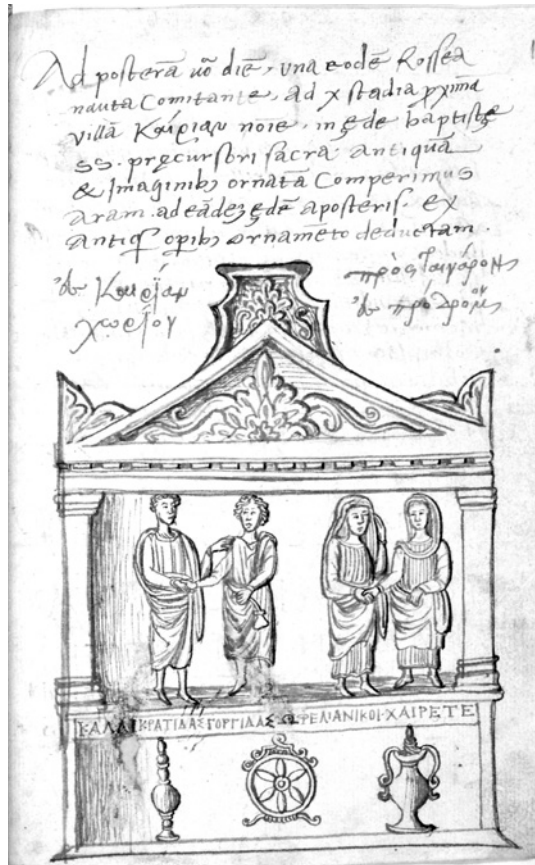 Ad posterā uō diē, vna eodē Rossea
nauta Comitante, ad x stadia ꝓxima
villā Κούριαν noīe, in ȩde baptistȩ
ss. prȩcursori sacra antiquā
& Imaginibꝫ ornatā Comperimus
aram. ad eādeꝫ ȩdē aposteris. ex
opibꝫ ornamēto deductam.
Κουρίαν
χωρίον
πρὸς
ΚΑΛΛΙΚΡΑΤΙΔΑΣ ΓΟΡΓΙΔΑΣ ΩΦΕΛΙΑΝΙΚΟΙ·ΧΑΙΡΕΤΕ